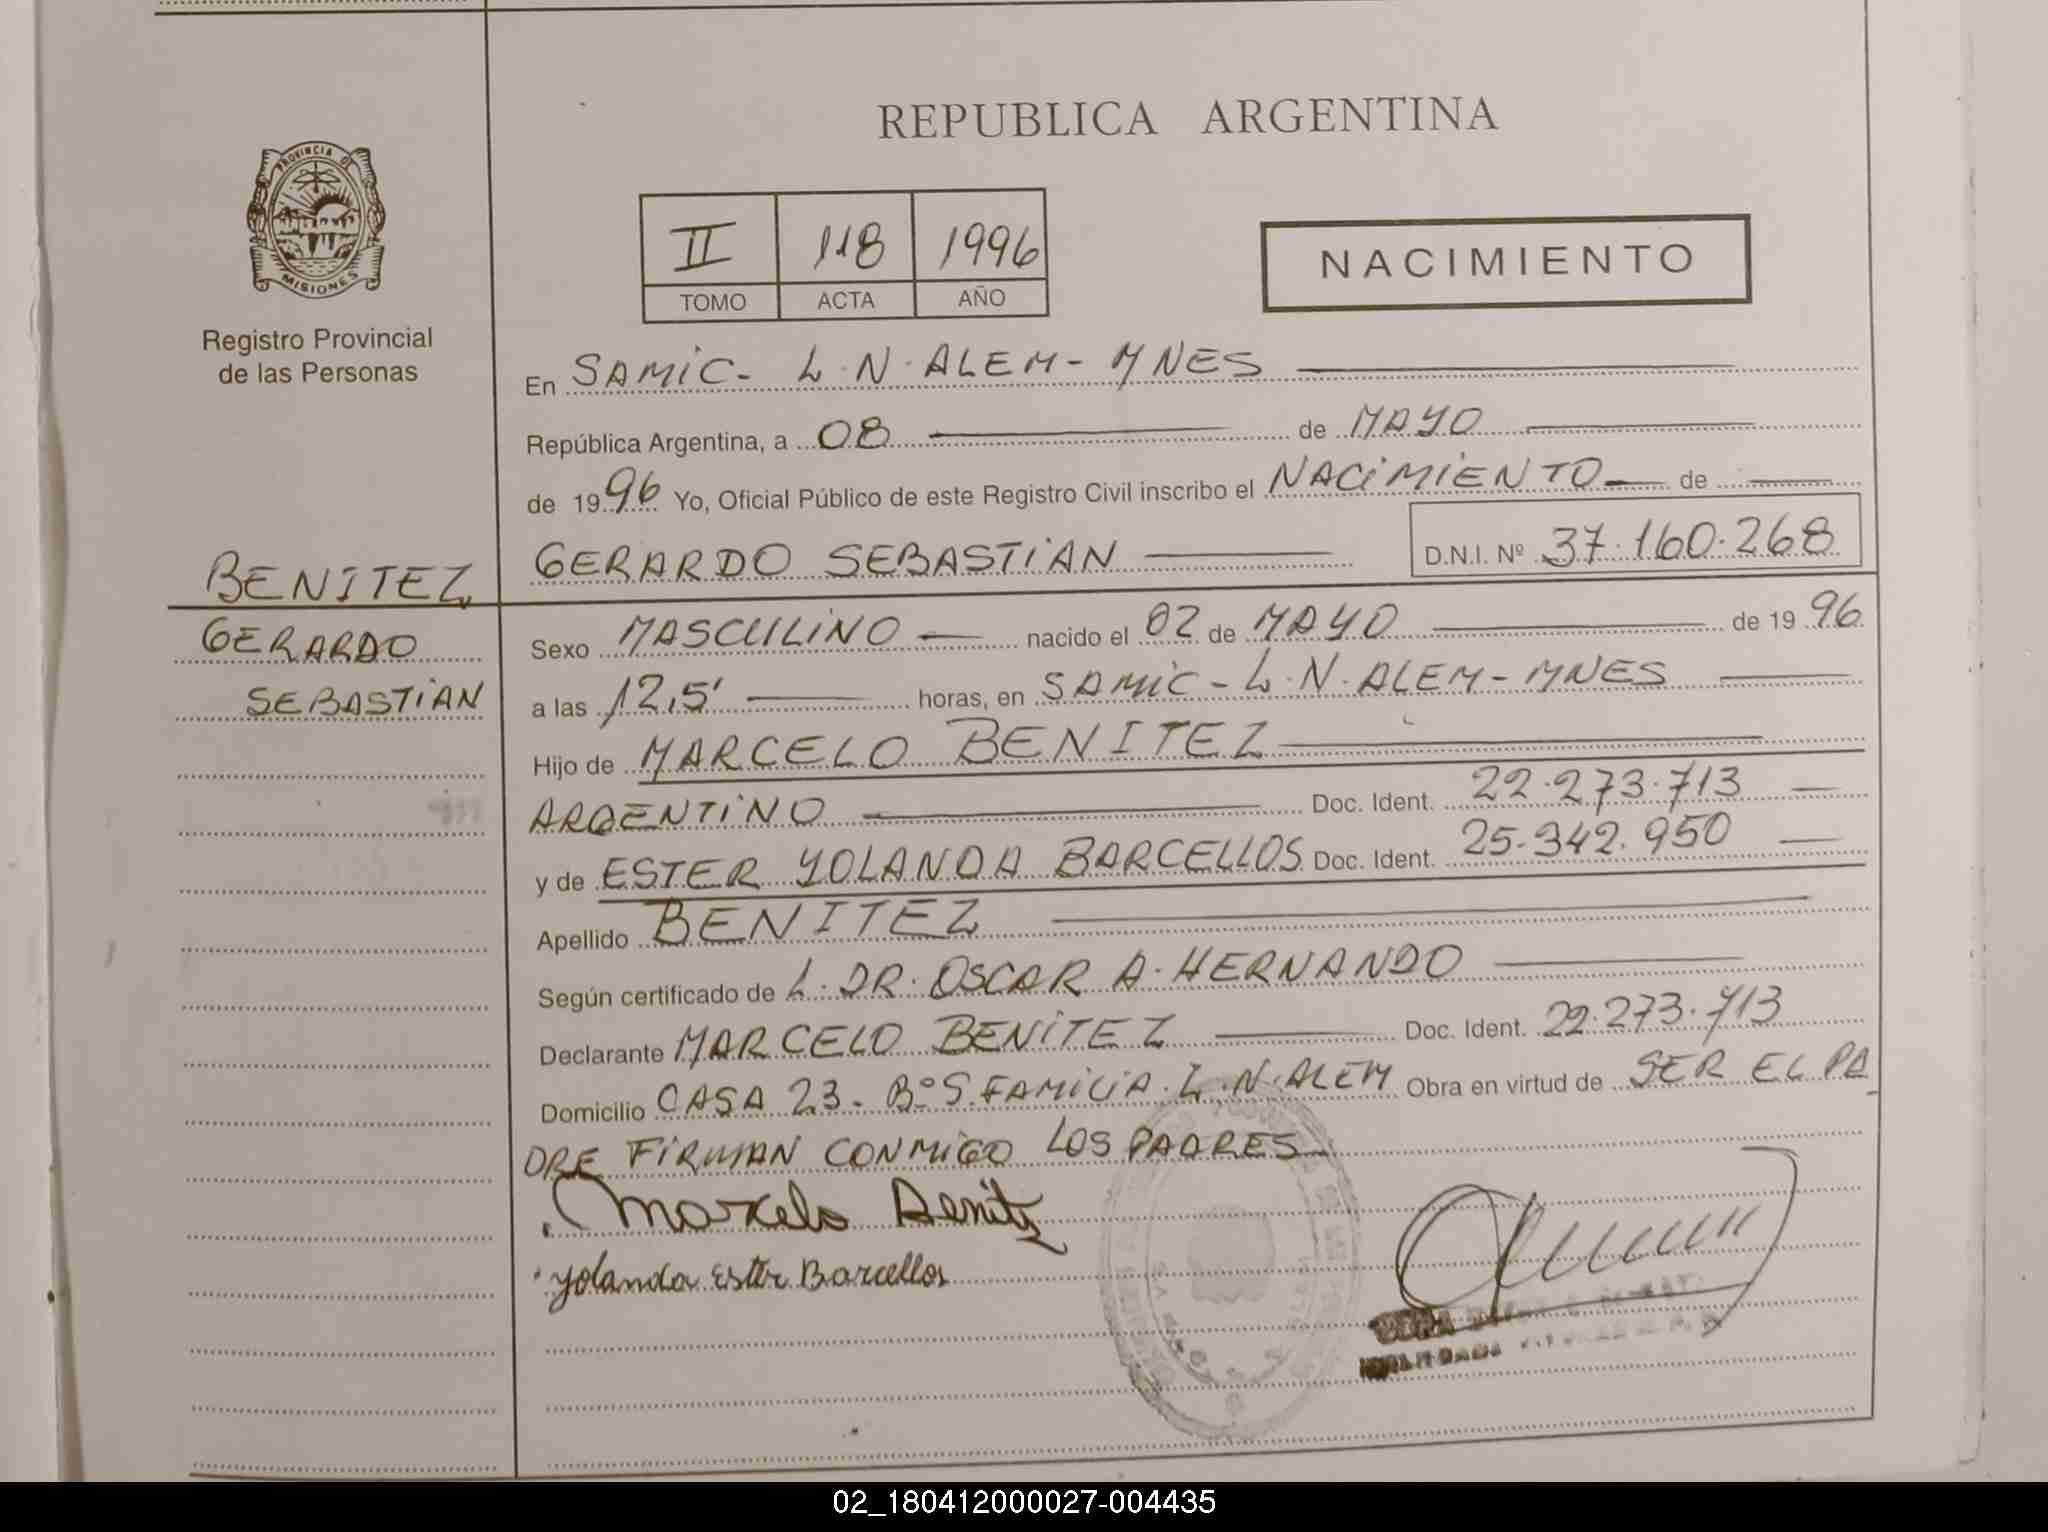 REPUBLICA ARGENTINA
PROVINCIA DE
MISIONES
Registro Provincial
de las Personas
II 118 1996
TOMO ACTA AÑO
NACIMIENTO
En SAMIC - L.N. ALEM - MNES
República Argentina, a 08 de MAYO
de 1996 Yo, Oficial Público de este Registro Civil inscribo el NACIMIENTO de
GERARDO SEBASTIAN D.N.I. Nº 37.160.268
BENITEZ
GERARDO
SEBASTIAN
Sexo MASCULINO nacido el 02 de MAYO de 1996
a las 12,5' horas, en SAMIC - L.N. ALEM - MNES
Hijo de MARCELO BENITEZ
ARGENTINO Doc. Ident. 22.273.713
y de ESTER YOLANDA BARCELLOS Doc. Ident. 25.342.950
Apellido BENITEZ
Según certificado de L. DR. OSCAR A. HERNANDO
Declarante MARCELO BENITEZ Doc. Ident. 22.273.713
Domicilio CASA 23 - Bº S. FAMILIA. L.N. ALEM Obra en virtud de SER EL PA
DRE FIRMAN CONMIGO LOS PADRES
Marcelo Benitz
Yolanda Ester Barcellos
02_180412000027-004435